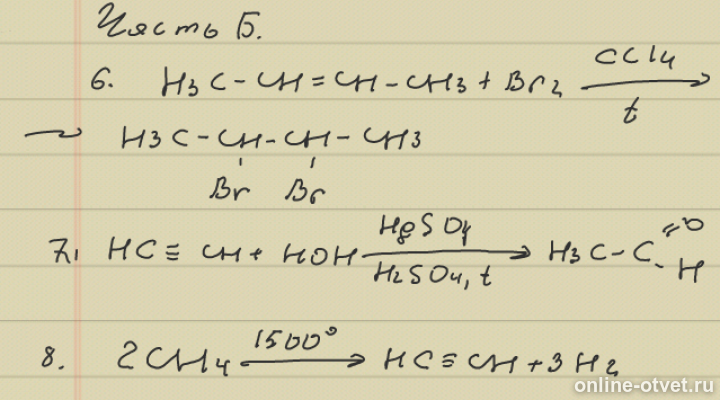 Часть Б.
6. H3C-CH=CH-CH3+Br2 CCl4 t →
→ H3C-CH-CH-CH3
Br Br
7. HC≡CH+HOH HgSO4 H2SO4, t → H3C-C=O H
8. 2CH4 1500° → HC≡CH+3H2
online-otvet.ru